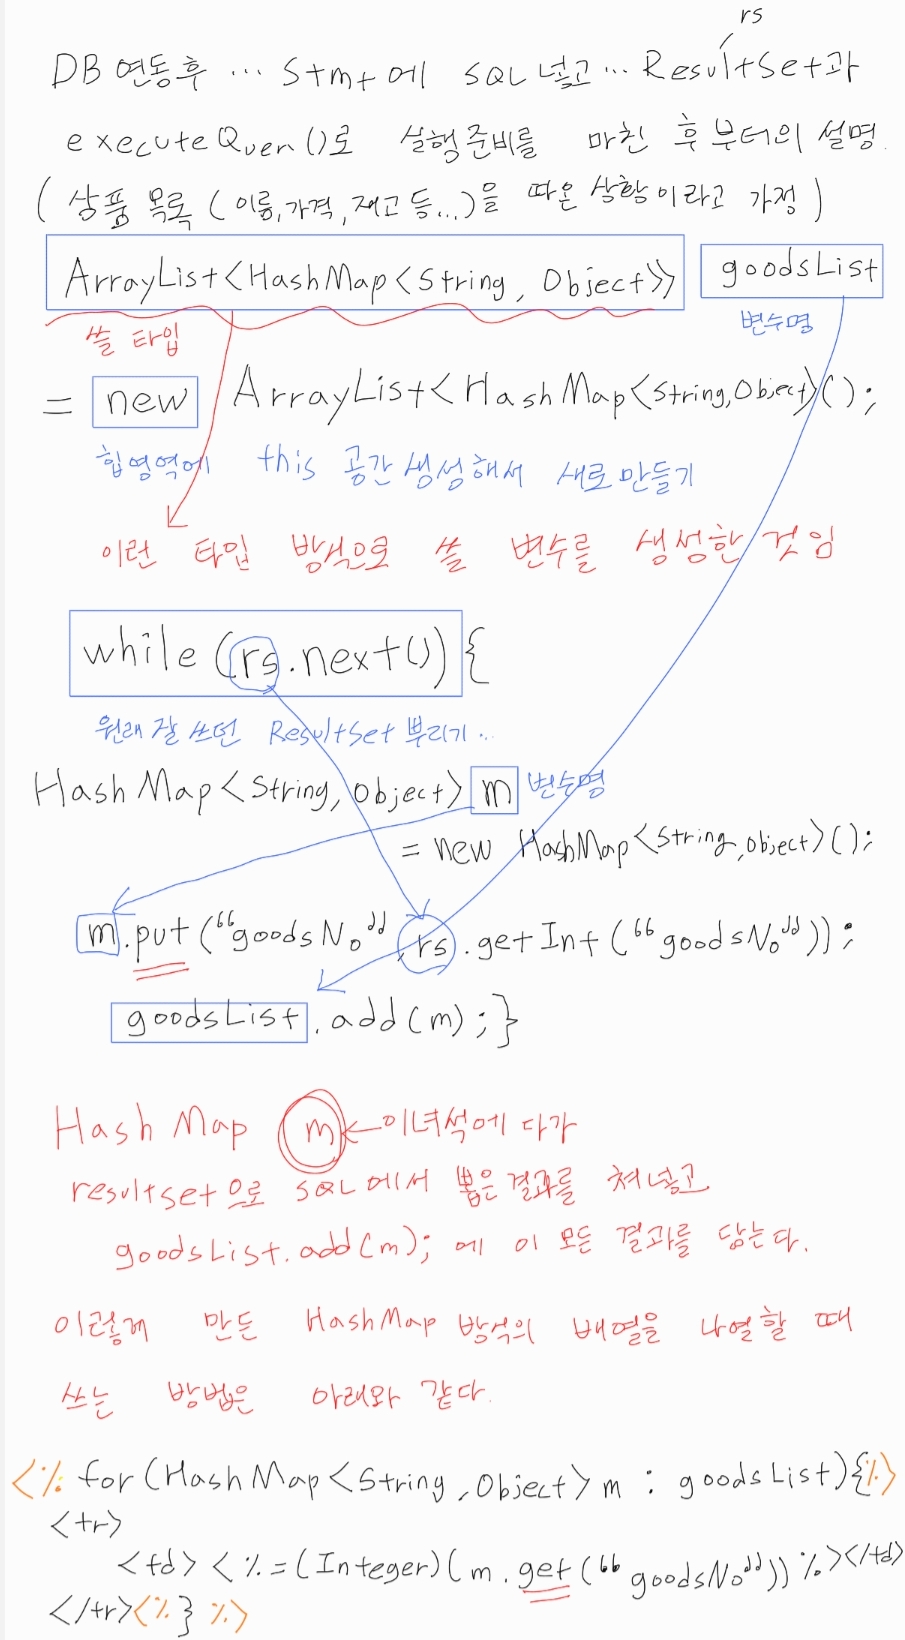 rs
DB 연동후 ... Stmt에 SQL 넣고... ResultSet과
executeQuer()로 실행준비를 마친 후 부터의 설명.
( 상품 목록 (이름,가격,재고 등...)을 따온 상황이라고 가정 )
ArrayList<HashMap<String, Object>> goodsList
쓸 타입 변수명
= new ArrayList<HashMap<String,Object>();
힙영역에 this 공간생성해서 새로만들기
이런 타입 방식으로 쓸 변수를 생성한 것임
while (rs.next()){
원래 잘 쓰던 ResultSet 뿌리기..
HashMap<String, Object> m 변수명
= new HashMap<String,Object>();
m.put(“goodsNo”, rs.getInt(“goodsNo”));
goodsList.add(m);}
Hash Map m ← 이녀석에 다가
resultset으로 SQL에서 뽑은결과를 쳐넣고
goodsList.add(m); 에 이 모든 결과를 담는다.
이렇게 만든 HashMap 방식의 배열을 나열할 때
쓰는 방법은 아래와 같다.
<% for(HashMap<String,Object> m : goodsList){%>
<tr>
<td> <%=(Integer)(m.get(“goodsNo”))%></td>
</tr><% } %>